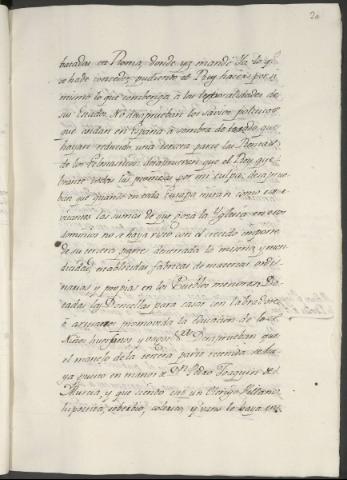 20
tratadas en Roma, donde
se hade conceder pudiendo el Rey hacer por si
mismo lo que convenga á las temporalidades de
sus Estados. No desaprueban los savios politicos
que andan en España á sombra de texado, que
hayan reducido una tercera parte las Rentas
de los Eclesiasticos: desaprueven que el Rey que
todas las por mi culpa; desaprue
ban que quando en toda Europa miran como
las sumas de que goza la Yglesia en estos
dominios no se haya visto con el crecido importe
de su tercera parte desterrada la miseria y men
diguez, establecidas fabricas de materias ordi
narias y propias en los Pueblos menores; Do
tadas las Doncellas para casar con Labradores
ó promovida la educacion de los
Niños huerfanos y vagos. Desaprueban que
el manejo de la tercera parte referida se ha
ya puesto en manos de Dn. Pedro Joaquin de
Murcia, y que siendo este un Clerigo
hipocrita, soberbio, colerico, y vano lo haya